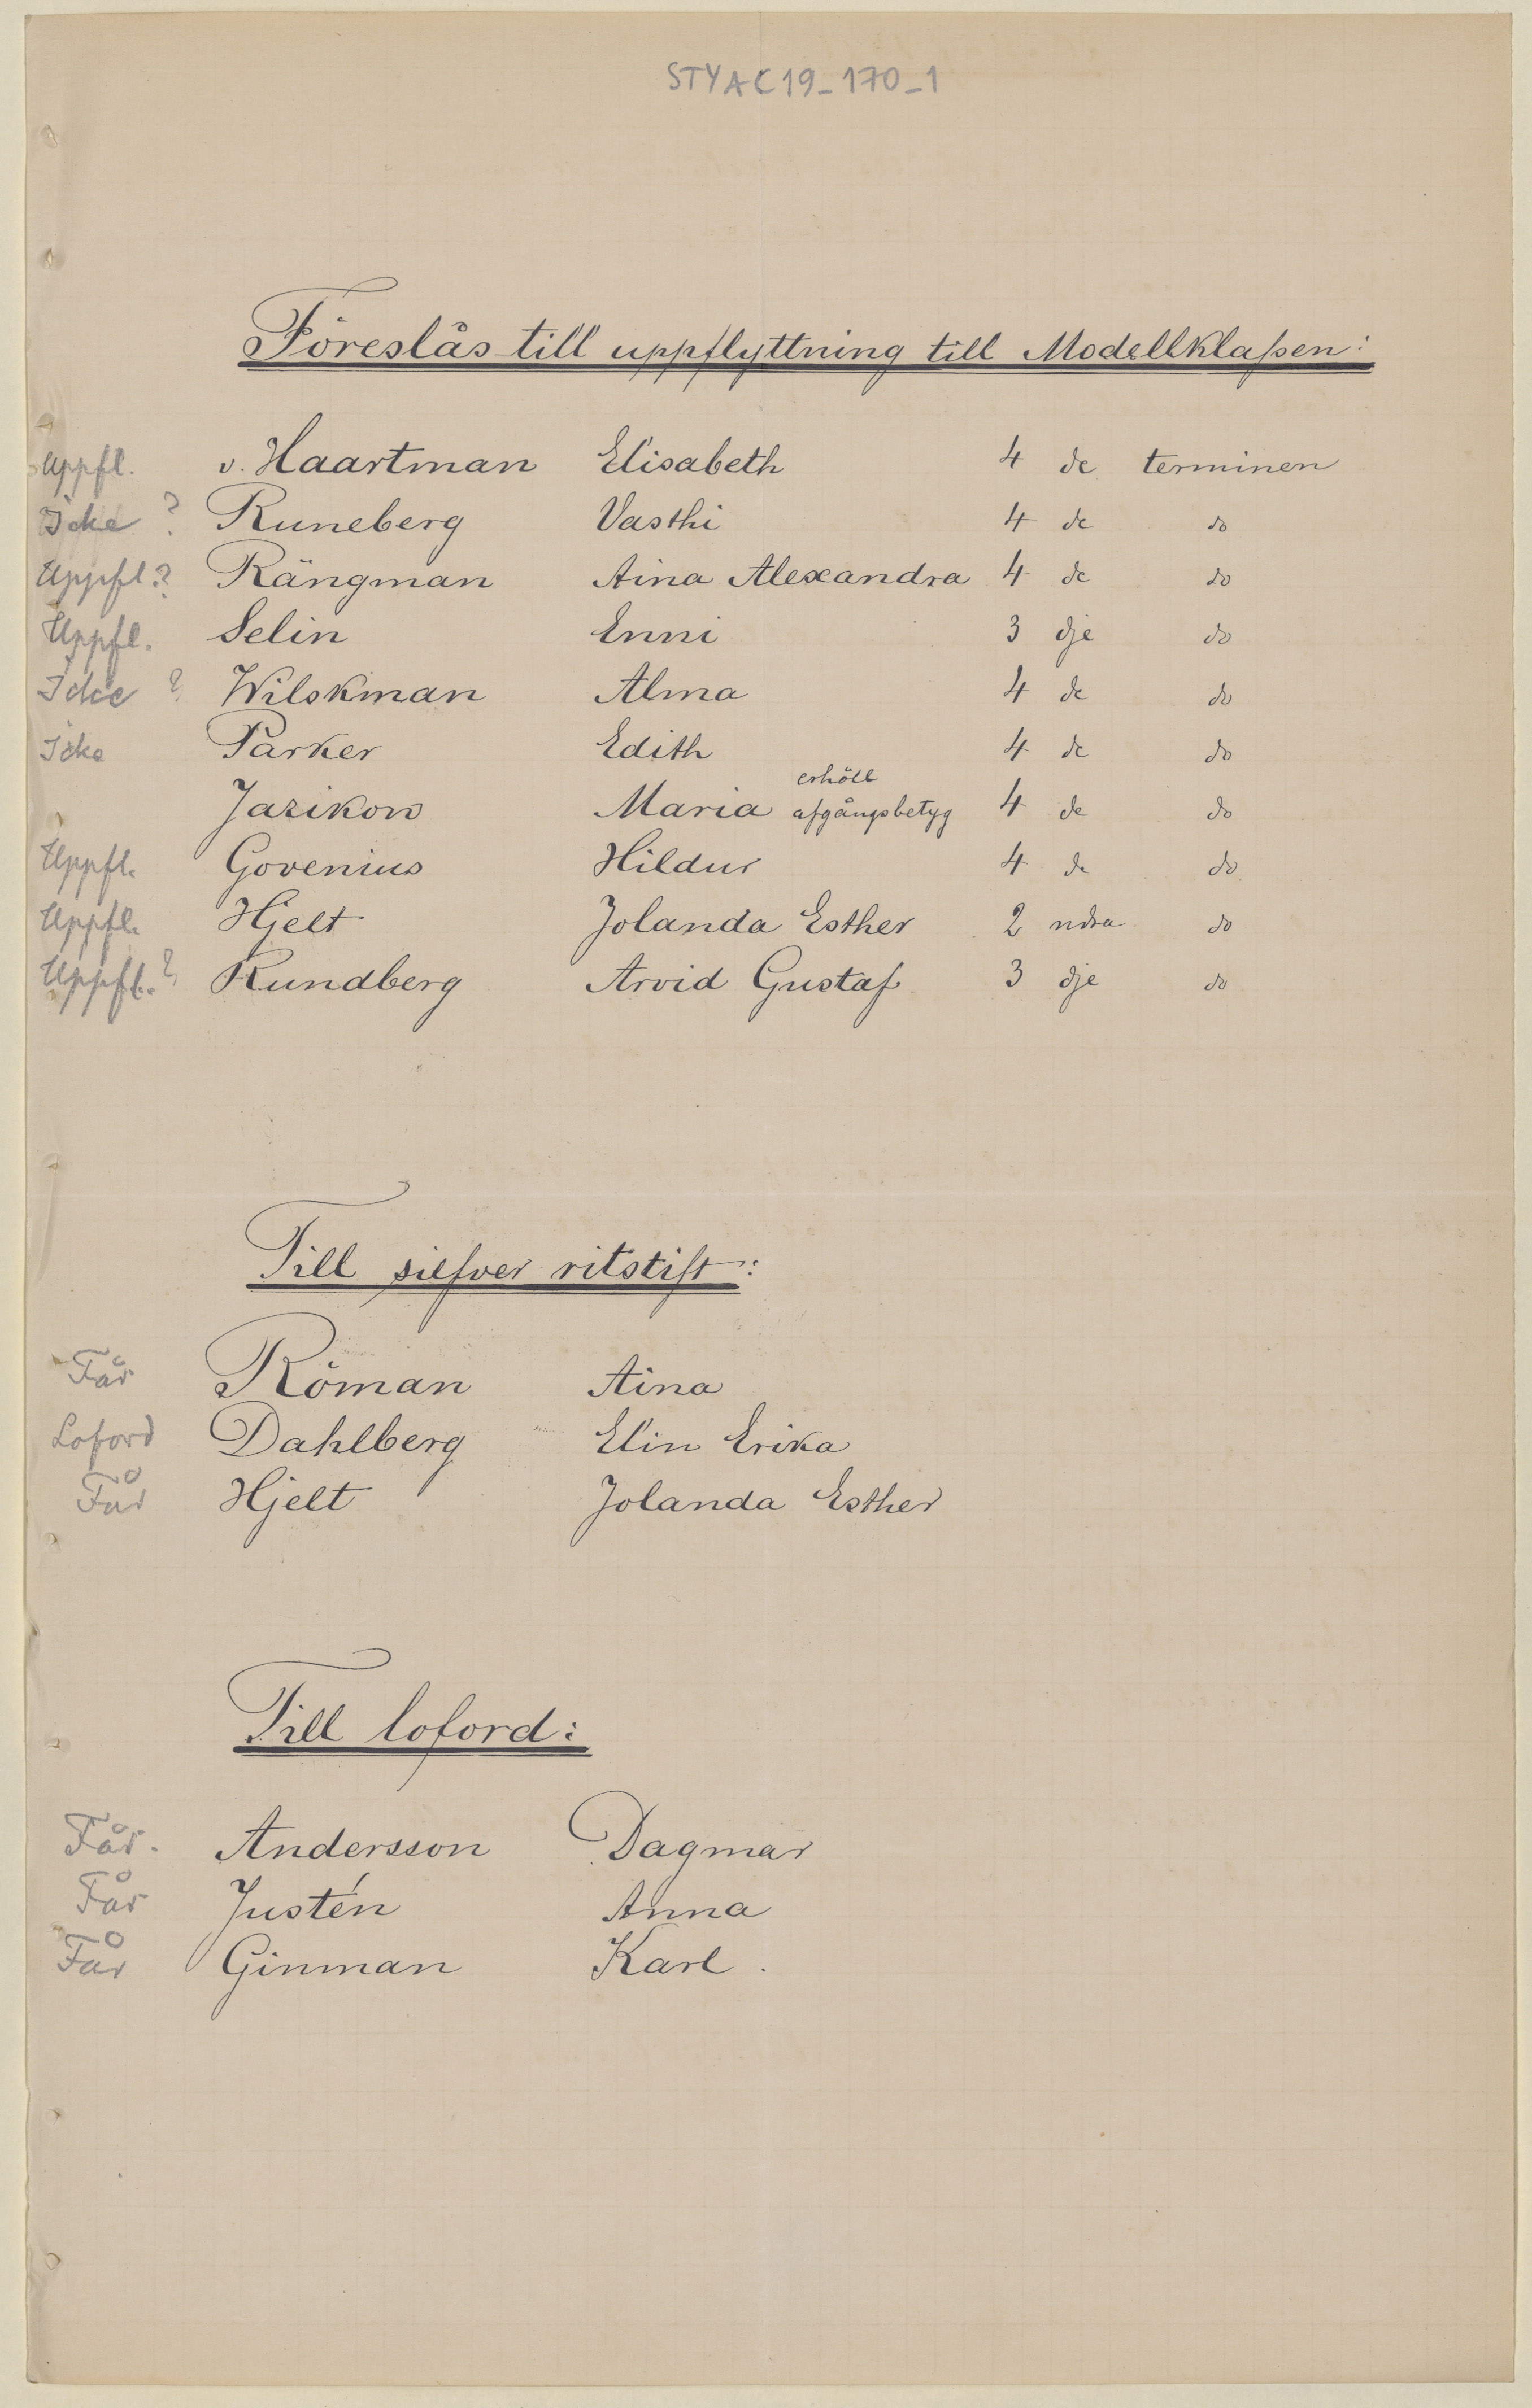 STYAC19_170_1
Föreslås till uppflyttning till Modellklaſsen:
Uppfl. v. Haartman Elisabeth 4 de terminen
Icke ? Runeberg Vasthi 4 de do
Uppfl? Rängman Aina Alexandra 4 de do
Uppfl. Selin Enni 3 dje do
Icke ? Wilskman Alma 4 de do
Icke Parker Edith 4 de do
erhöll
Jazikow Maria afgångsbetyg 4 de do
Uppfl. Govenius Hildur 4 de do
Uppfl. Hjelt Jolanda Esther 2 ndra do
Uppfl.? Rundberg Arvid Gustaf 3 dje do
Till silfver ritstift:
Får Röman Aina
Loford Dahlberg Elin Erika
Får Hjelt Jolanda Esther
Till loford:
Får. Andersson Dagmar
Får Justén Anna
Får Ginman Karl.